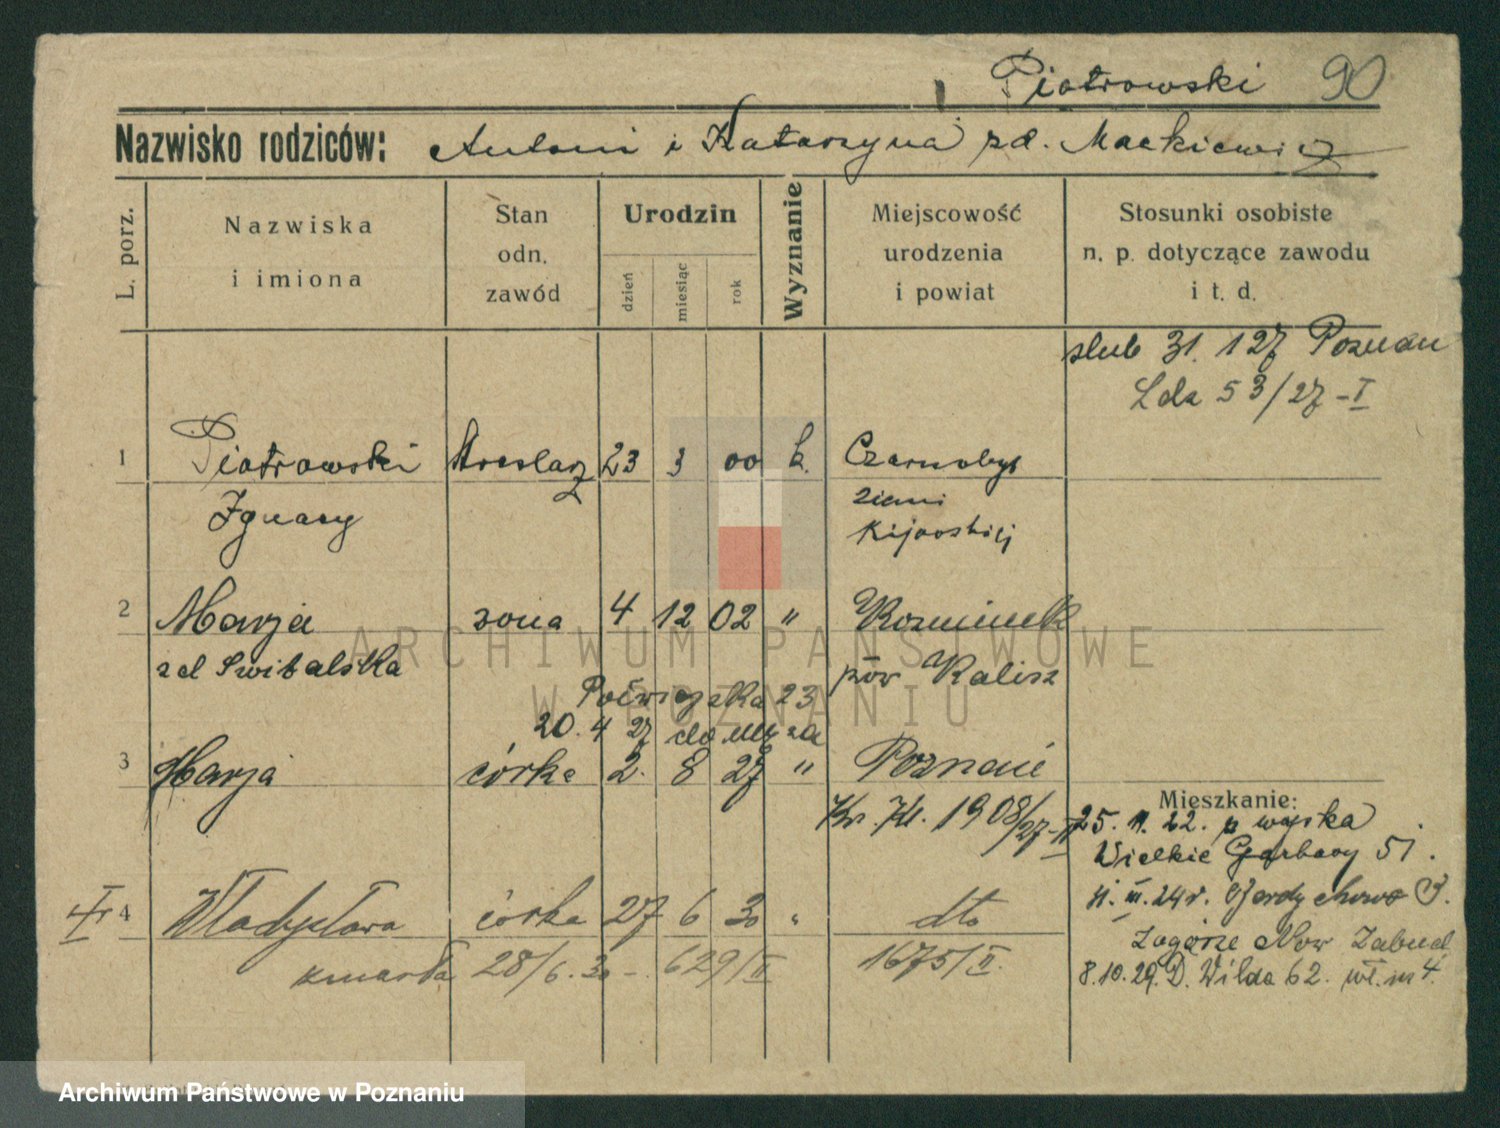 Piotrowski 90
Nazwisko rodziców: Antoni i Katarzyna zd. Mackiewicz
L. porz.
Nazwiska
i imiona
Stan
odn.
zawód
Urodzin
dzień
miesiąc
rok
Wyznanie
Miejscowość
urodzenia
i powiat
Stosunki osobiste
n. p. dotyczące zawodu
i t. d.
slub 31. 1 27 Poznan
Lda 53/27 - I
1 Piotrowski 23 3 00 k. Czarnobyl
Ignacy
ziemi
Kijowskiej
2 Marja zona 4 12 02 " Kozminek
zd Swibalska pow Kalisz
23
20. 4 27
3 Marja córka 2. 8 27 " Poznań
Kr. Kl. 1908/27-II
Mieszkanie:
25. 11. 22. p wojska
Wielkie Garbary 51.
11. III. 24r.
4 Władysława córka 27 6 30 " dto
zmarła 28/6. 30 - 629/II 1675/II.
Zagórze Now Zabud
8.10.29. D. Wilda 62. wł. m 4.
ARCHIWUM PAŃSTWOWE
W POZNANIU
Archiwum Państwowe w Poznaniu